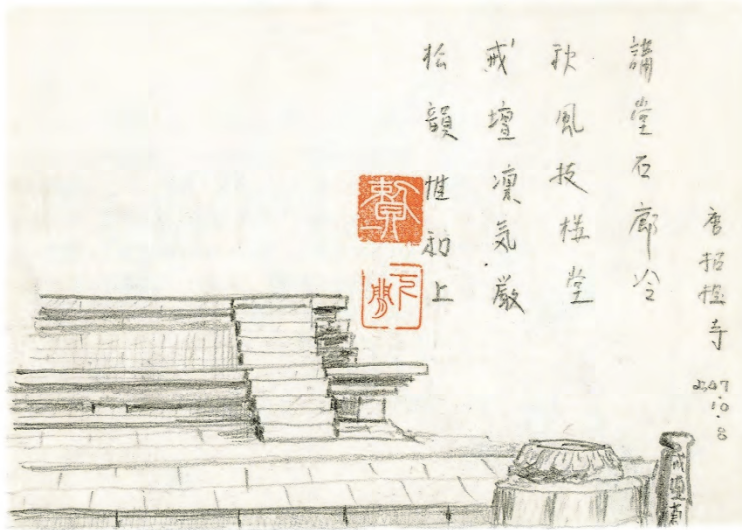 唐招提寺
47.10.8
講堂石廊冷
秋風堂
戒壇凛気厳
松韻惟和上
戒壇